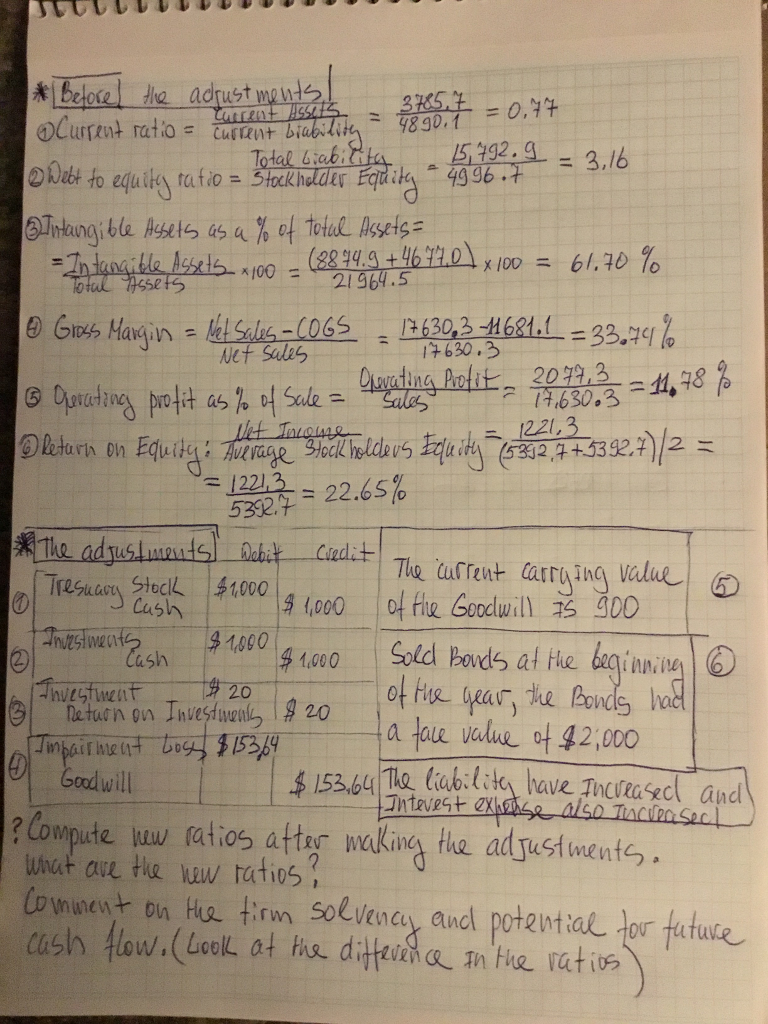 * Before the adjustments
① Current ratio = Current Assets / Current Liability = 3785.7 / 4890.1 = 0.77
② Debt to equity ratio = Total Liability / Stockholder Equity = 15,792.9 / 4996.7 = 3.16
③ Intangible Assets as a % of total Assets =
= Intangible Assets / Total Assets × 100 = (8874.9 + 4677.0) / 21964.5 × 100 = 61.70 %
④ Gross Margin = Net Sales - COGS / Net Sales = 17630.3 - 11681.1 / 17630.3 = 33.74%
⑤ Operating profit as % of Sale = Operating Profit / Sales = 2077.3 / 17,630.3 = 11.78 %
⑥ Return on Equity: Net Income / Average Stockholders Equity = 1221.3 / (5392.7 + 5392.7)/2 =
= 1221.3 / 5392.7 = 22.65%
* The adjustments Debit Credit
① Tresuary Stock $1,000
Cash $1,000
② Investments $1,000
Cash $1,000
③ Investment $20
Return on Investments $20
④ Impairment Loss $153,64
Goodwill $153,64
The current carrying value ⑤
of the Goodwill Is 900
Sold Bonds at the beginning ⑥
of the year, the Bonds had
a face value of $2,000
The liability have Increased and
Interest expense also Increased
? Compute new ratios after making the adjustments.
What are the new ratios?
Comment on the firm solvency and potential for future
cash flow. (Look at the difference In the ratios)